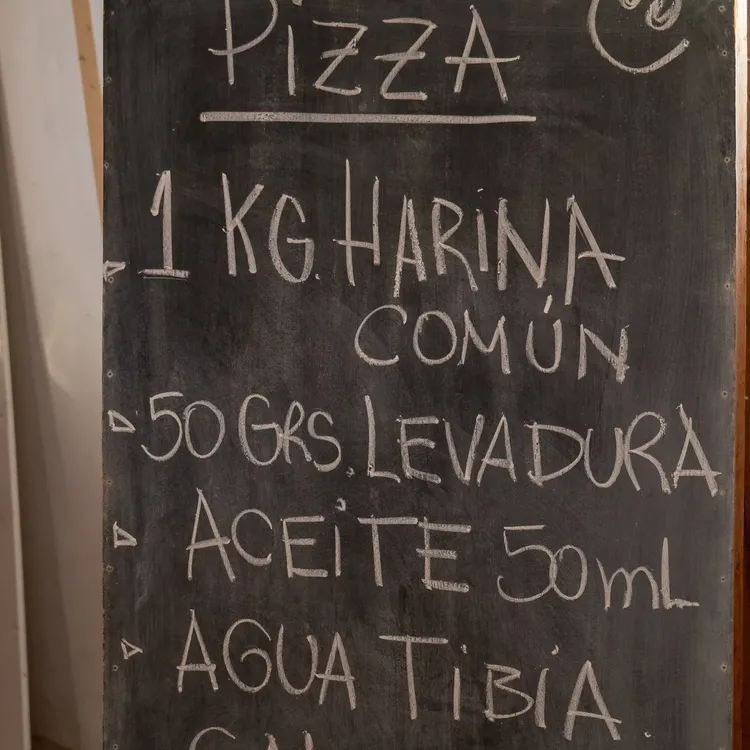 PiZZA
1 KG. HARiNA
COMÚN
50 GRS. LEVADURA
ACEiTE 50 mL
AGUA TiBiA.